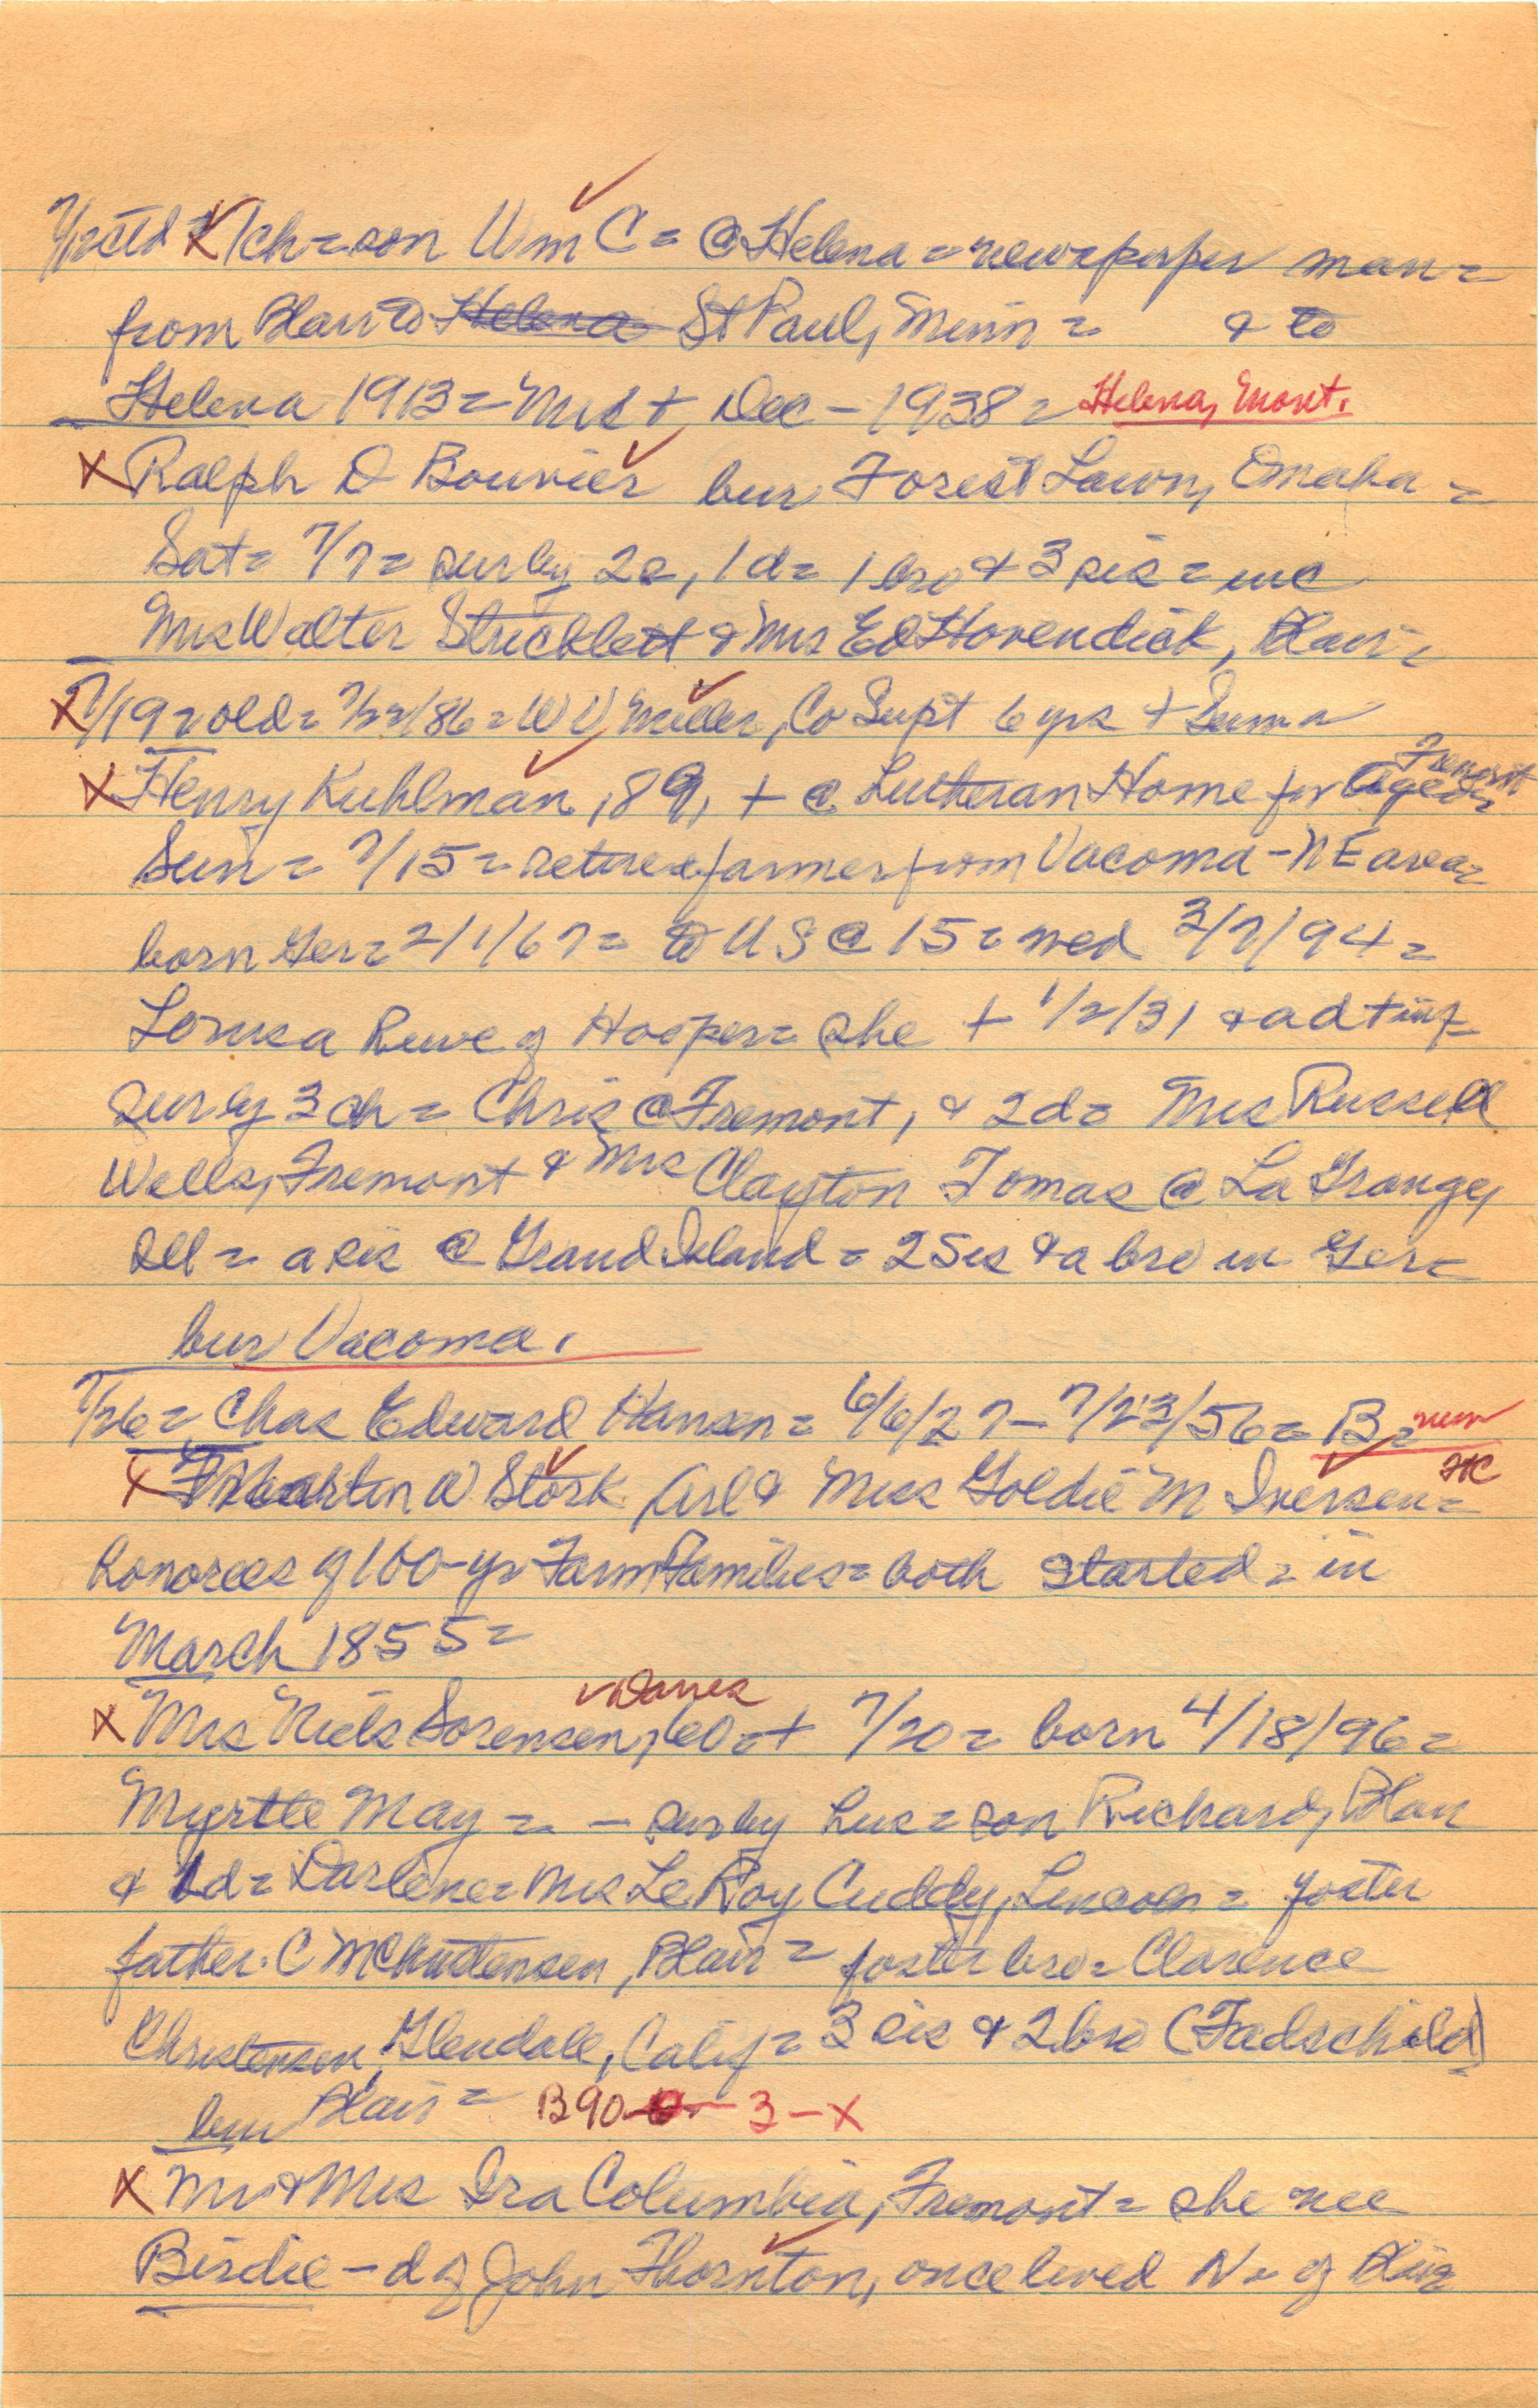 7/12ctd X 1ch = son Wm C = @ Helena = newspaper man =
from Blair to Helena St Paul, Minn = & to
Helena 1913 = Mrs + Dec - 1938 = Helena, Mont.
X Ralph D Bouvier bur Forest Lawn, Omaha =
Sat = 7/7 = sur by 2s, 1d = 1 bro & 3 sis = inc
Mrs Walter Stricklett & Mrs Ed Hovendick, Blair =
X 7/19 = old = 7/22/86 = W V Miller, Co Supt 6 yrs +
X Henry Kuhlman, 89, + @ Lutheran Home for Aged = Fremont
Sun = 7/15 = retired farmer from Vacoma - NE area =
born Ger = 2/1/67 = to US @ 15 = wed 3/7/94 =
Louisa Ruwe of Hooper = she + 1/2/31 & a d + inf
Sur by 3 ch = Chris @ Fremont, & 2d = Mrs Russell
Wells, Fremont & Mrs Clayton Tomas @ La Grange,
Ill = a sis @ Grand Island = 2 Sis & a bro in Ger =
bur Vacoma.
7/26 = Chas Edward Hansen = 6/6/27 - 7/23/56 = B = mem
X Martin W Stork Arl & Miss Goldie M Iversen = HC
honorees of 100-yr Farm Families = both started = in
March 1855 =
X Mrs Niels Sorensen, 60 = + 7/20 = born 4/18/96 = Danes
Myrtle May = - sur by hus = son Richard, Blair
& 1d = Darlene = Mrs Le Roy Cuddy, Lincoln = foster
father. C M Christensen, Blair = foster bro = Clarence
Christensen, Glendale, Calif = 3 sis & 2 bro (Fadschild)
bur Blair = B90 - 3 - X
X Mr & Mrs Ira Columbia, Fremont = she nee
Birdie - d of John Thornton, once lived N = of Blair